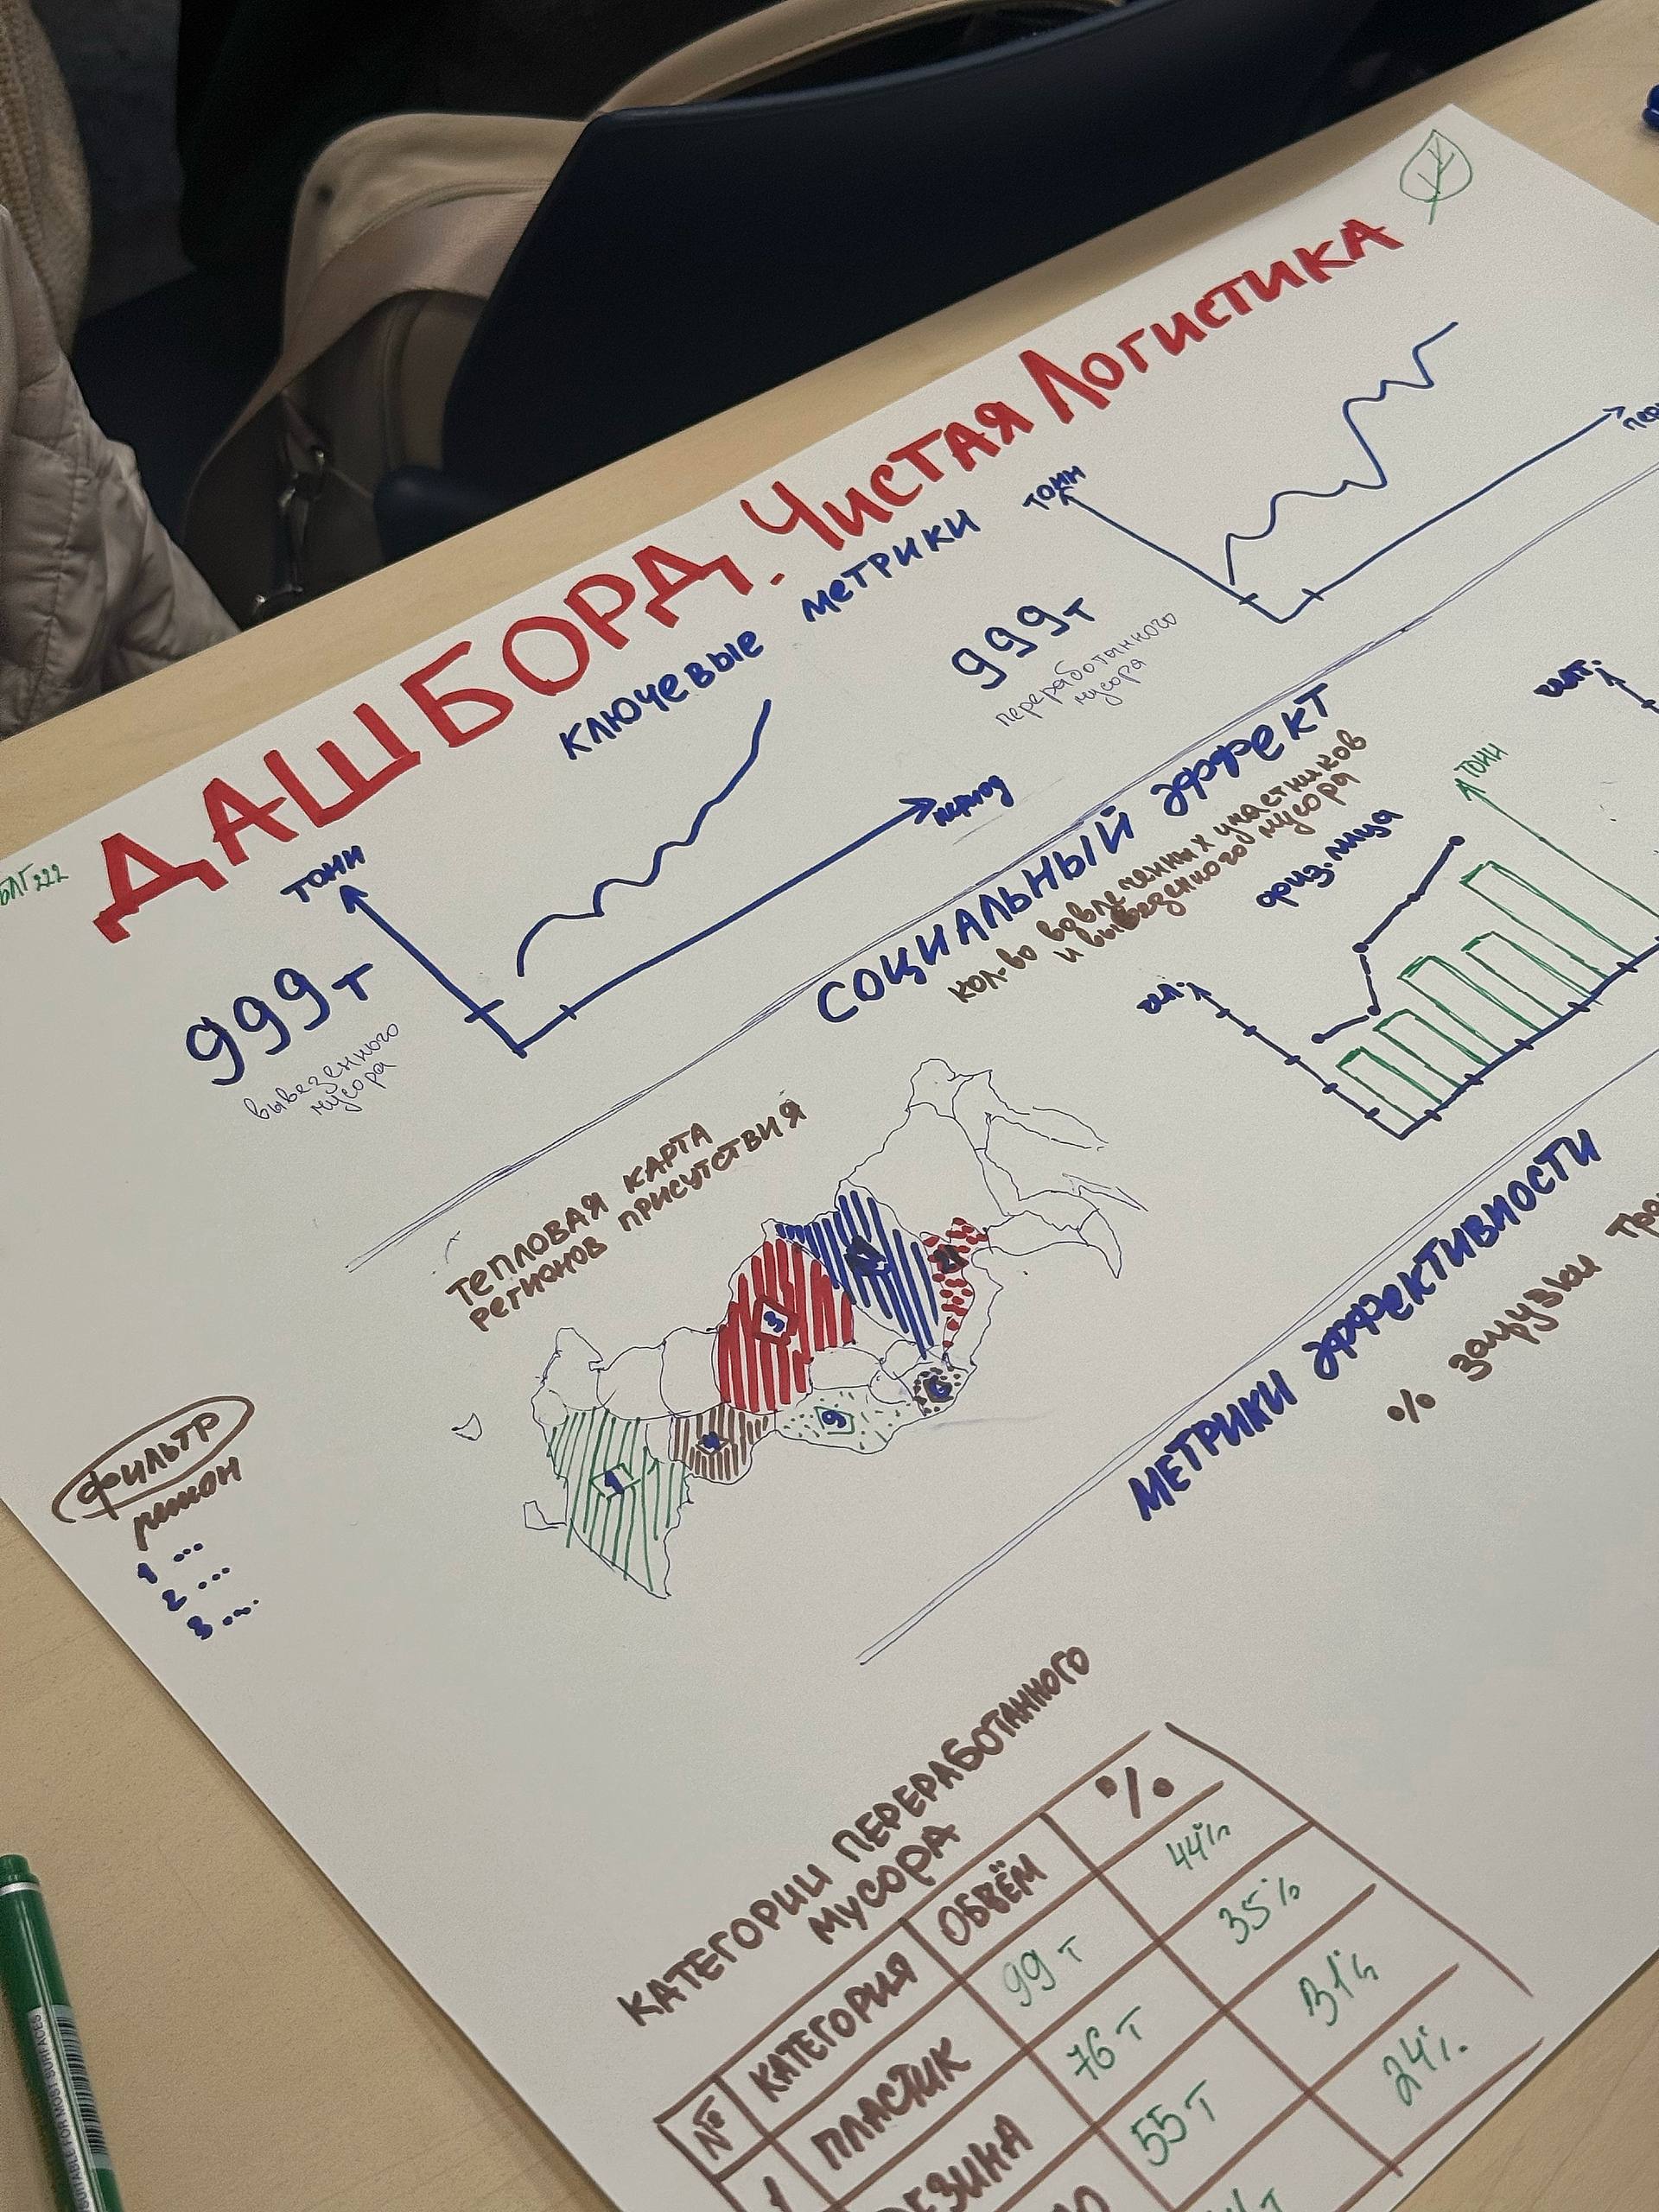 ДАШБОРД. Чистая Логистика
БЛГ222
КЛЮЧЕВЫЕ МЕТРИКИ
999т
вывезенного
мусора
тонн
период
999т
переработанного
мусора
тонн
СОЦИАЛЬНЫЙ ЭФФЕКТ
кол-во вовлеченных участников
и вывезенного мусора
физ.лица
тонн
ТЕПЛОВАЯ КАРТА
РЕГИОНОВ ПРИСУТСТВИЯ
3
21
6
9
4
1
фильтр
регион
1 ...
2 ...
3 ....
МЕТРИКИ ЭФФЕКТИВНОСТИ
% загрузки
КАТЕГОРИИ ПЕРЕРАБОТАННОГО
МУСОРА
№ КАТЕГОРИЯ ОБЪЁМ %
1 ПЛАСТИК 99 т 44%
76 т 35%
55 т 31%
24%
SUITABLE FOR MOST SURFACES